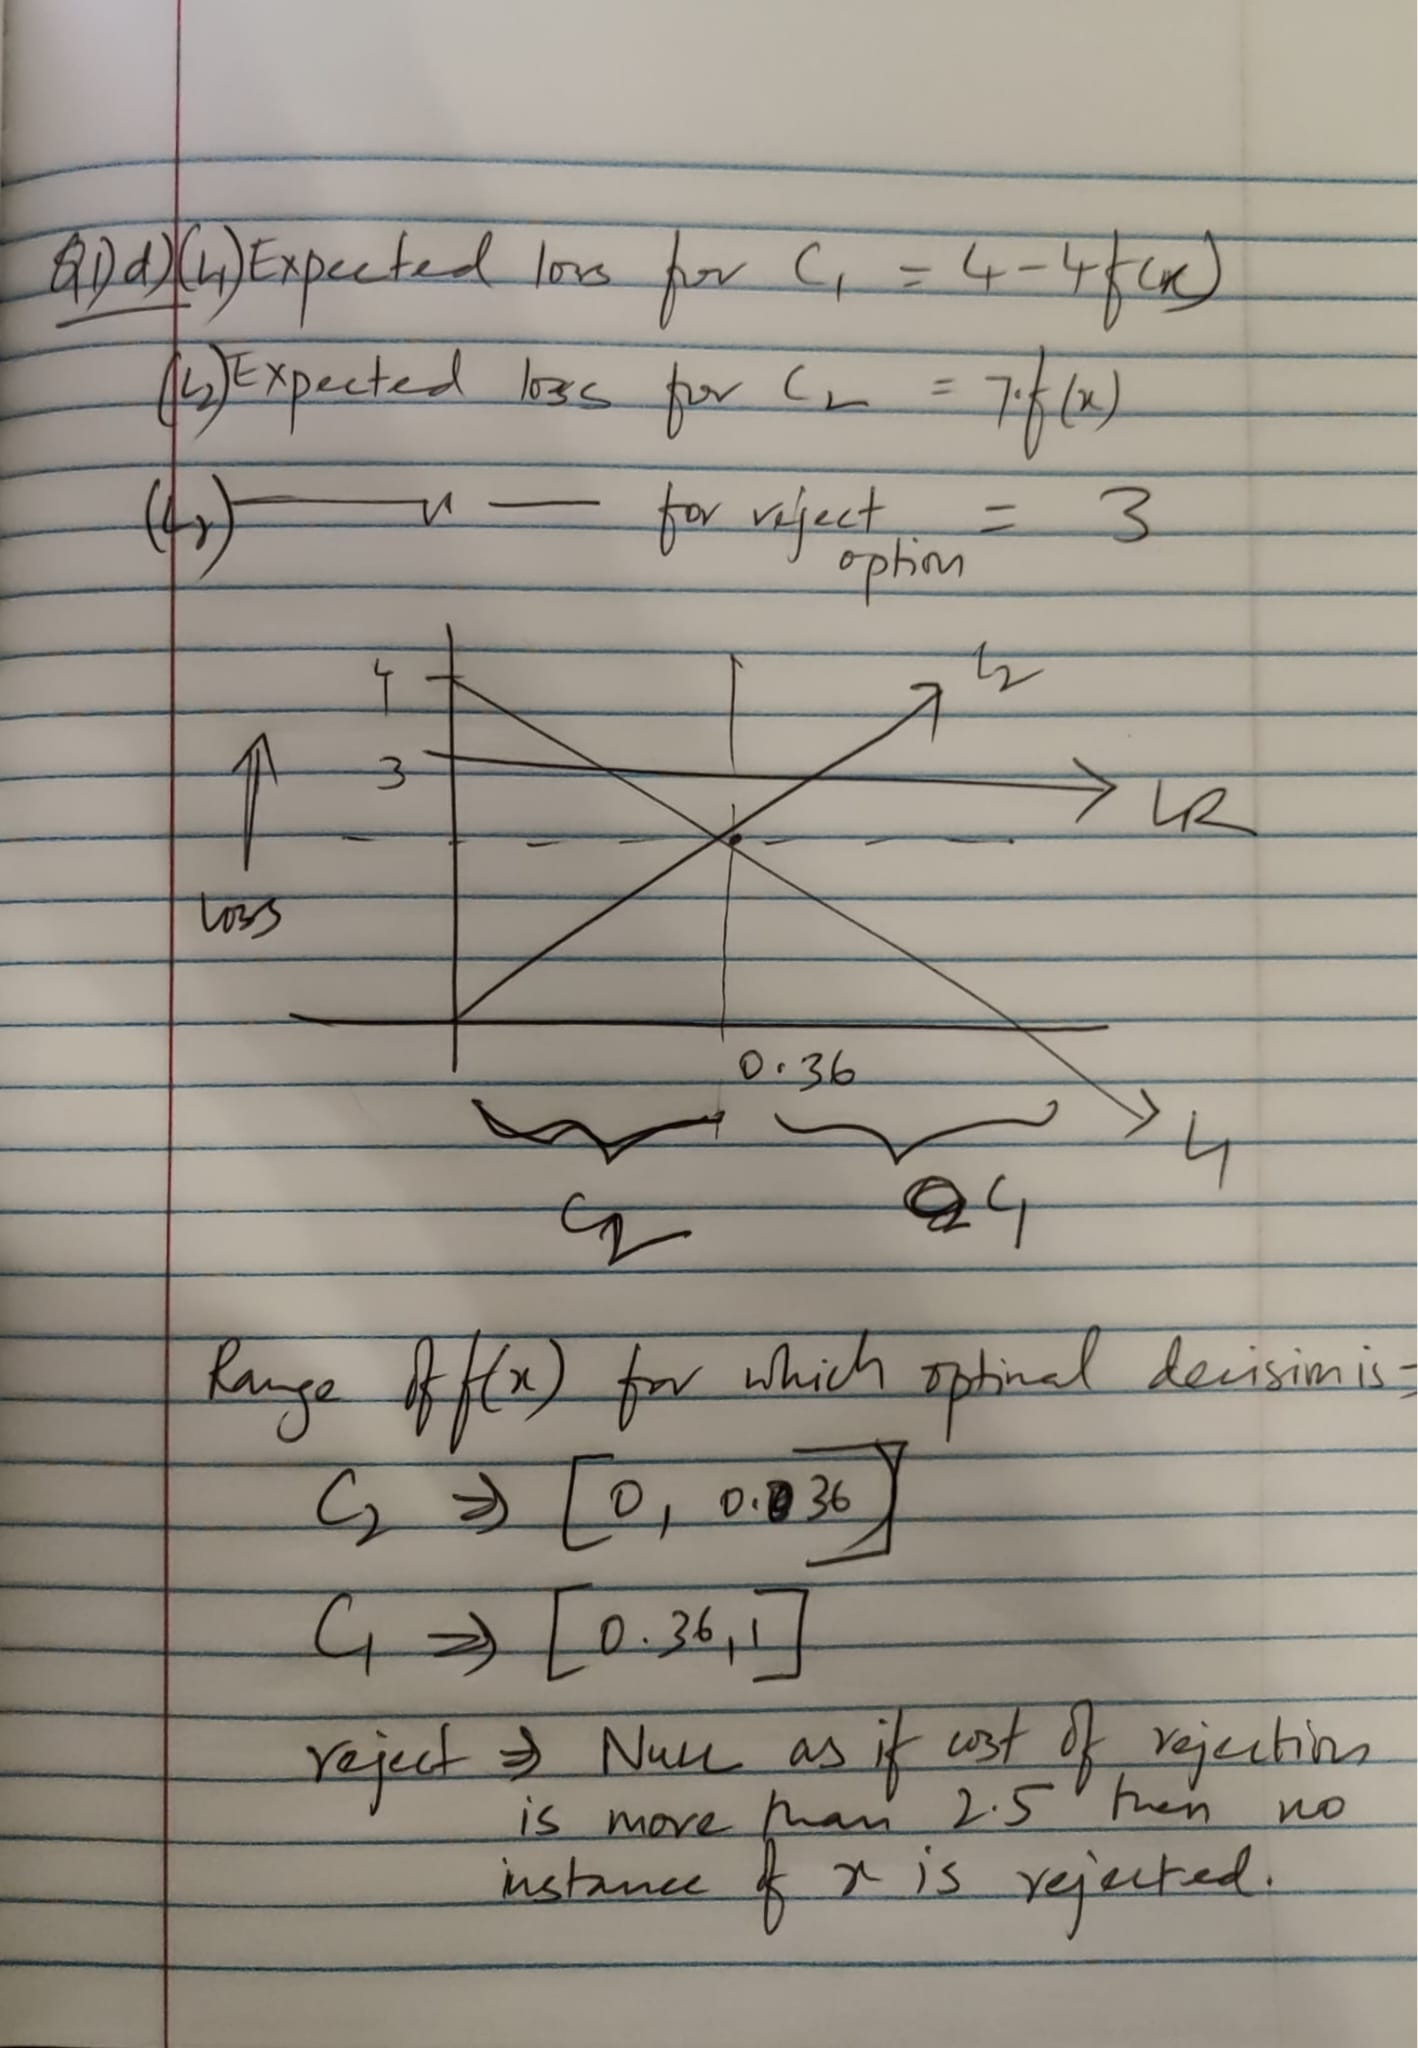 Q1)d)(L1) Expected loss for C1 = 4-4f(x)
(L2) Expected loss for C2 = 7.f(x)
(Lr) —— 〃 —— for reject option = 3
4
L2
3
LR
Loss
0.36
L1
C2
C1
Range of f(x) for which optimal decision is =
C2 ⇒ [0, 0.36]
C1 ⇒ [0.36, 1]
reject ⇒ Null as if cost of rejection
is more than 2.5 then no
instance of x is rejected.